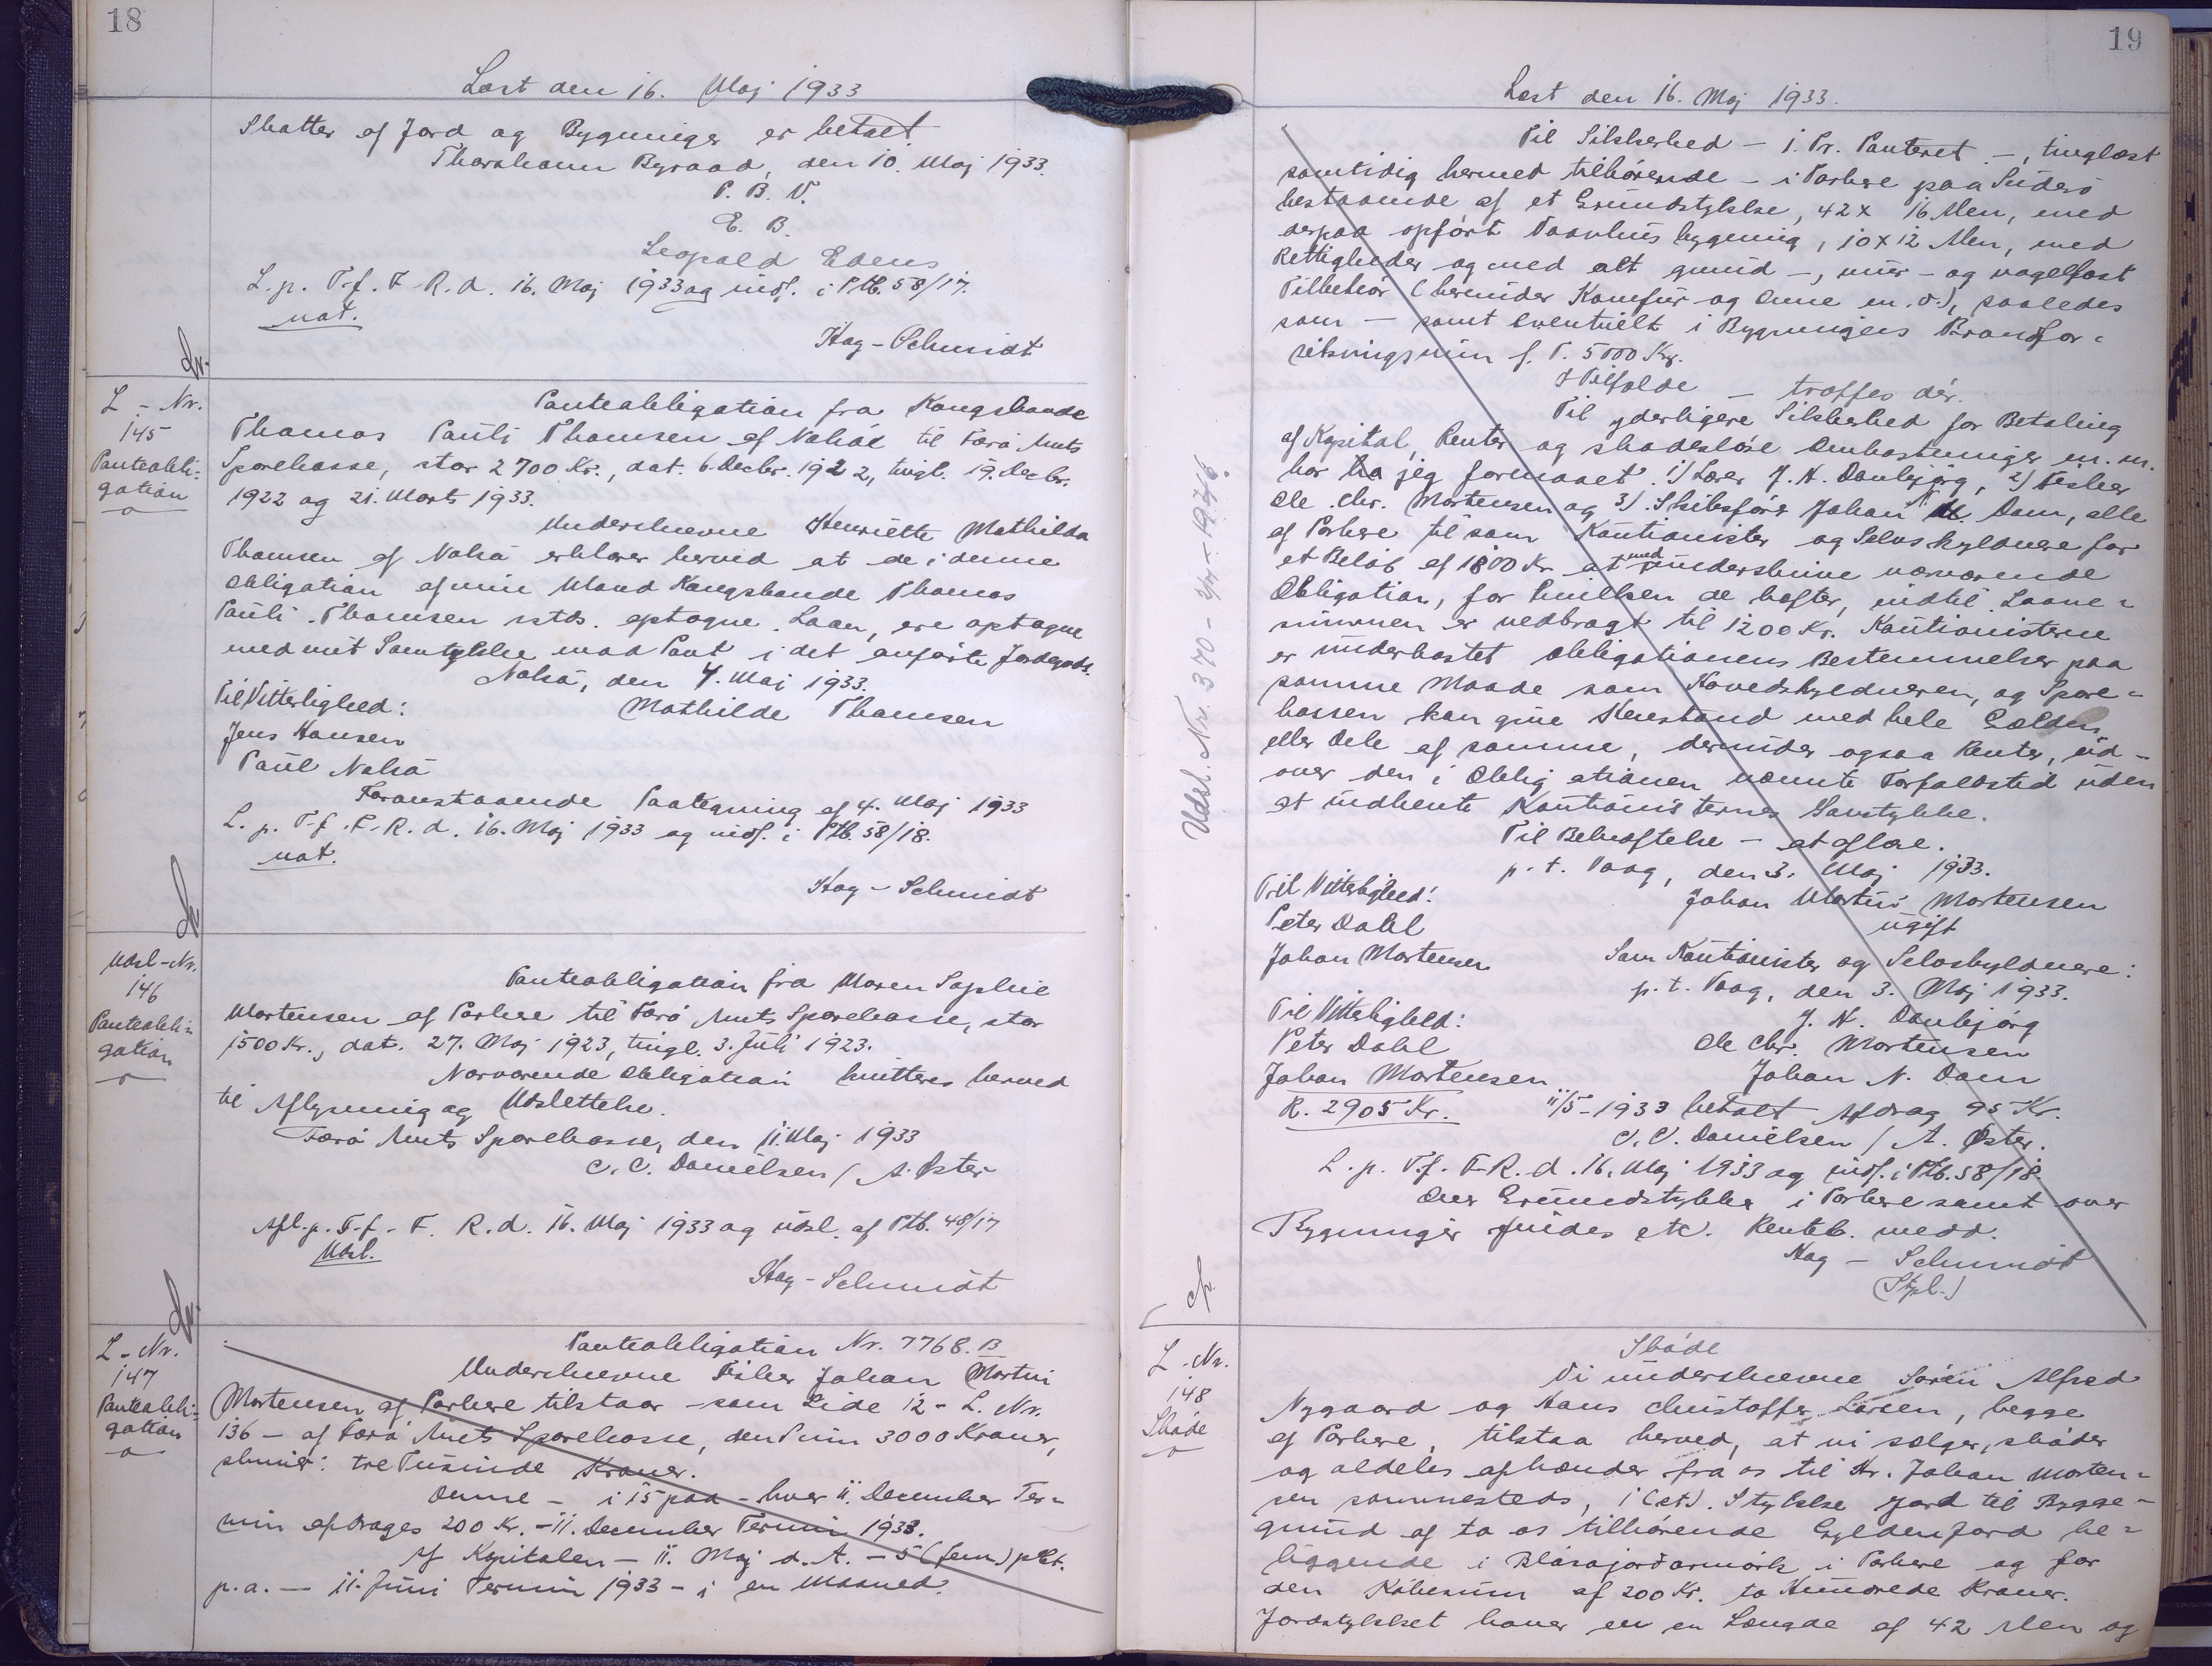 18
Læst den 16. Maj 1933
Skatter af Jord og Bygninger er betalt.
Thorshavn Byraad, den 10. Maj 1933.
P. B. V.
E. B.
Leopold Edens
L. p. T. f. F. R. d. 16. Maj 1933 og indf. i Ptb. 58/17.
not.
Hag-Schmidt
L-Nr.
145
Panteobli-
gation
Panteobligation fra Kongsbonde
Thomas Pauli Thomsen af Nolsö til Færø Amts
Sparekasse, stor 2700 Kr., dat. 6. Decbr. 1922, tingl. 19. Decbr.
1922 og 21. Marts 1933.
Underskrevne Henriette Mathilda
Thomsen af Nolsö erklærer herved at de i denne
Obligation af min Mand Kongsbonde Thomas
Pauli Thomsen optagne Laan, ere optagne
med mit Samtykke mod Pant i det anførte Jordegods.
Nolsö, den 4. Maj 1933.
Til Vitterlighed:
Mathilde Thomsen
Jens Hansen
Paul Nolsö
Foranstaaende Paategning af 4. Maj 1933
L. p. T. f. F. R. d. 16. Maj 1933 og indf. i Ptb. 58/18.
not.
Hag-Schmidt
Udsl-Nr.
146
Panteobli-
gation
Panteobligation fra Maren Sophie
Mortensen af Porkere til Færø Amts Sparekasse, stor
1500 Kr., dat. 27. Maj 1923, tingl. 3. Juli 1923.
Nærværende Obligation kvitteres herved
til Aflysning og Udslettelse.
Færø Amts Sparekasse, den 11. Maj 1933
C. C. Danielsen / A. Øster
Afl. p. T. f. F. R. d. 16. Maj 1933 og udsl. af Ptb. 48/17
Udsl.
Hag-Schmidt
L-Nr.
147
Panteobli-
gation
Panteobligation Nr. 7768. B
Underskrevne Fisker Johan Martin
Mortensen af Porkere tilstaar - som Side 12 - L. Nr.
136 - af Færø Amts Sparekasse, den Sum 3000 Kroner,
skriver: tre Tusinde Kroner.
Denne - i 15 paa - hver 11. December Ter-
min afdrages 200 Kr. - 11. December Termin 1933.
Af Kapitalen - 11. Maj d. A. - 5 (fem) pCt.
p.a. - 11. Juni Termin 1933 - i en Maaned.
19
Læst den 16. Maj 1933.
Til Sikkerhed - 1. Pr. Panteret -, tinglæst
samtidig hermed tilhørende - i Porkere paa Suderø
bestaaende af et Grundstykke, 42 x 16 Alen, med
derpaa opført Vaanhusbygning, 10 x 12 Alen, med
Rettigheder og med alt grund -, mur - og nagelfast
Tilbehør (herunder Komfur og Ovne m. v.), saaledes
som - samt eventuelt i Bygningens Brandfor-
sikringssum f. T. 5000 Kr.
I Tilfælde - træffes dér.
Til yderligere Sikkerhed for Betaling
af Kapital, Renter og skadesløse Omkostninger m. m.
har jeg formaaet 1) Lærer J. N. Danbjørg, 2) Fisker
Ole Chr. Mortensen og 3) Skibsfører Johan N. Dam, alle
af Porkere til som Kautionister og Selvskyldnere for
et Beløb af 1800 Kr. at med underskrive nærværende
Obligation, for hvilken de hæfter, indtil Laane-
summen er nedbragt til 1200 Kr. Kautionisterne
er underkastet Obligationens Bestemmelser paa
samme Maade som Hovedskyldneren, og Spare-
kassen kan give Henstand med hele Gælden
eller Dele af samme, derunder ogsaa Renter, ud-
over den i Obligationen nævnte Forfaldstid uden
at indhente Kautionisternes Samtykke.
Til Bekræftelse - at aflæse.
p. t. Vaag, den 3. Maj 1933.
Til Vitterlighed:
Johan Martin Mortensen
Peter Dahl
ugift
Johan Mortensen
Som Kautionister og Selvskyldnere:
p. t. Vaag, den 3. Maj 1933.
Til Vitterlighed:
J. N. Danbjørg
Peter Dahl
Ole Chr. Mortensen
Johan Mortensen
Johan N. Dam
R. 2905 Kr.
11/5-1933 betalt Afdrag 95 Kr.
C. C. Danielsen / A. Øster.
L. p. T. f. F. R. d. 16. Maj 1933 og indf. i Ptb. 58/18.
Over Grundstykker i Porkere samt over
Bygninger findes etc. Renteb. medd.
Hag - Schmidt
(Stpl.)
Udsl. Nr. 370 - 1946.
L-Nr.
148
Skøde
Skøde
Vi underskrevne Sørin Alfred
Nygaard og Hans Christoffer Larsen, begge
af Porkere, tilstaa herved, at vi sælger, skøder
og aldeles afhænder fra os til Hr. Johan Morten-
sen sammesteds, 1 (et) Stykke Jord til Bygge-
grund af to os tilhørende Gyldenjord be-
liggende i Blásajørdarmørk i Porkere og for
den Købesum af 200 Kr. to Hundrede Kroner.
Jordstykket haver en en Længde af 42 Alen og